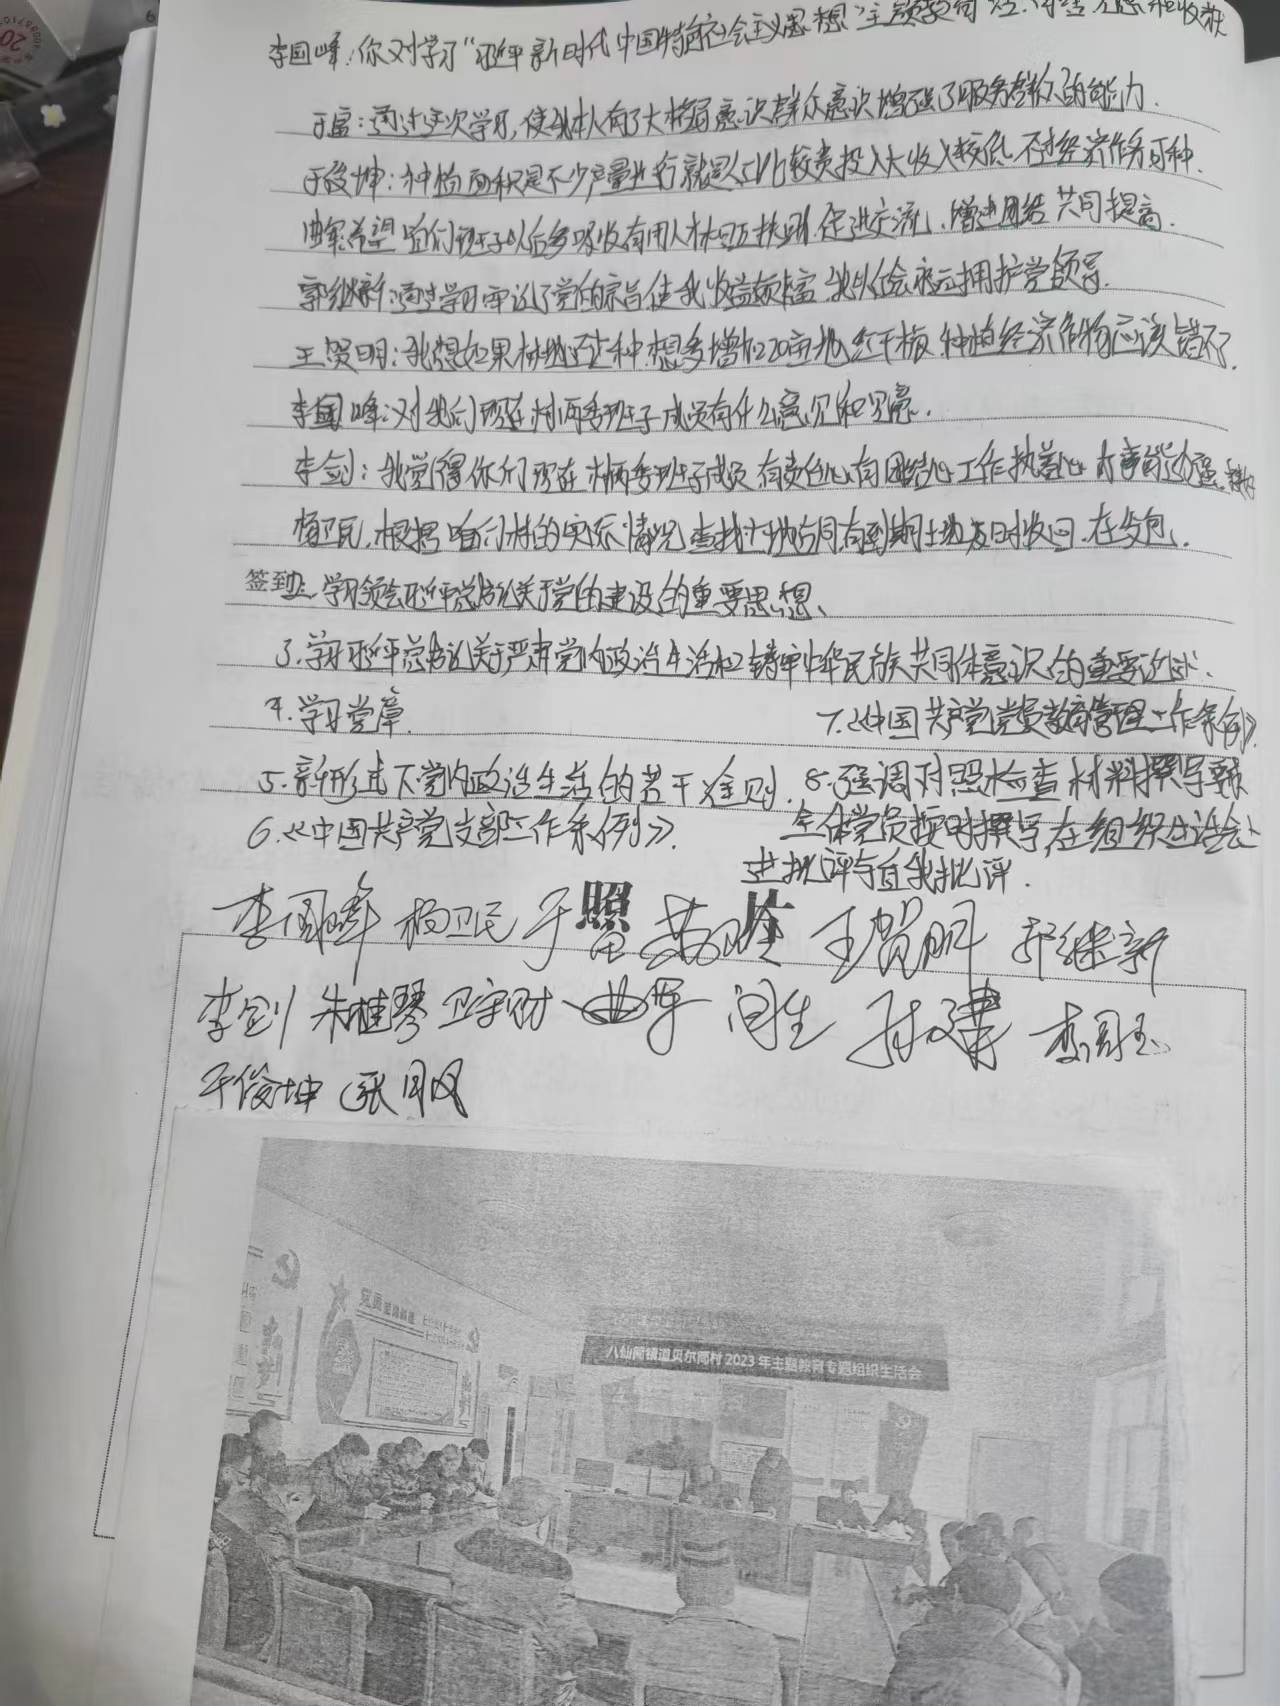 李国峰:你对学习"习近平新时代中国特色社会主义思想"主题教育 收获
于富:通过这次学习,使我本人有了大格局意识群众意识增强了服务群众的能力.
于俊坤:种植面积是不少产量也行就是人工比较贵投入大收入较低.不过经济作物可种.
曲军希望咱们班子以后多吸收有用人材互相扶助.促进交流,增进团结共同提高.
郭继新:通过学习 了党的宗旨使我收益颇富.我认会永远拥护党领导.
王贺明:我想如果林地还上种.想多增加220亩地红干椒种植经济作物应该错不了.
李国峰:对我们现在村两委班子成员有什么意见和 .
李剑:我觉得你们现在村两委班子成员有责任心有团结心工作执着心办事能力强.
杨卫民.根据咱们村的实际情况查找土地合同有到期土地及时收回.在发包.
签到 学习领会习近平总书记关于党的建设的重要思想、
3.学习习近平总书记关于严肃党内政治生活和铸牢中华民族共同体意识的重要论述.
4.学习党章
7.《中国共产党党员教育管理工作条例》
5.新形式下党内政治生活的若干准则.
8.强调对照检查材料撰写
6.《中国共产党支部工作条例》.
全体党员按时撰写,在组织生活会上
进批评与自我批评.
李国峰 杨卫民 于 照 王贺明 郭继新
李剑 朱桂琴 卫宇财 曲军 闫生 李国玉
于俊坤 张月凤
八仙筒镇道贝尔筒村2023年主题教育专题组织生活会